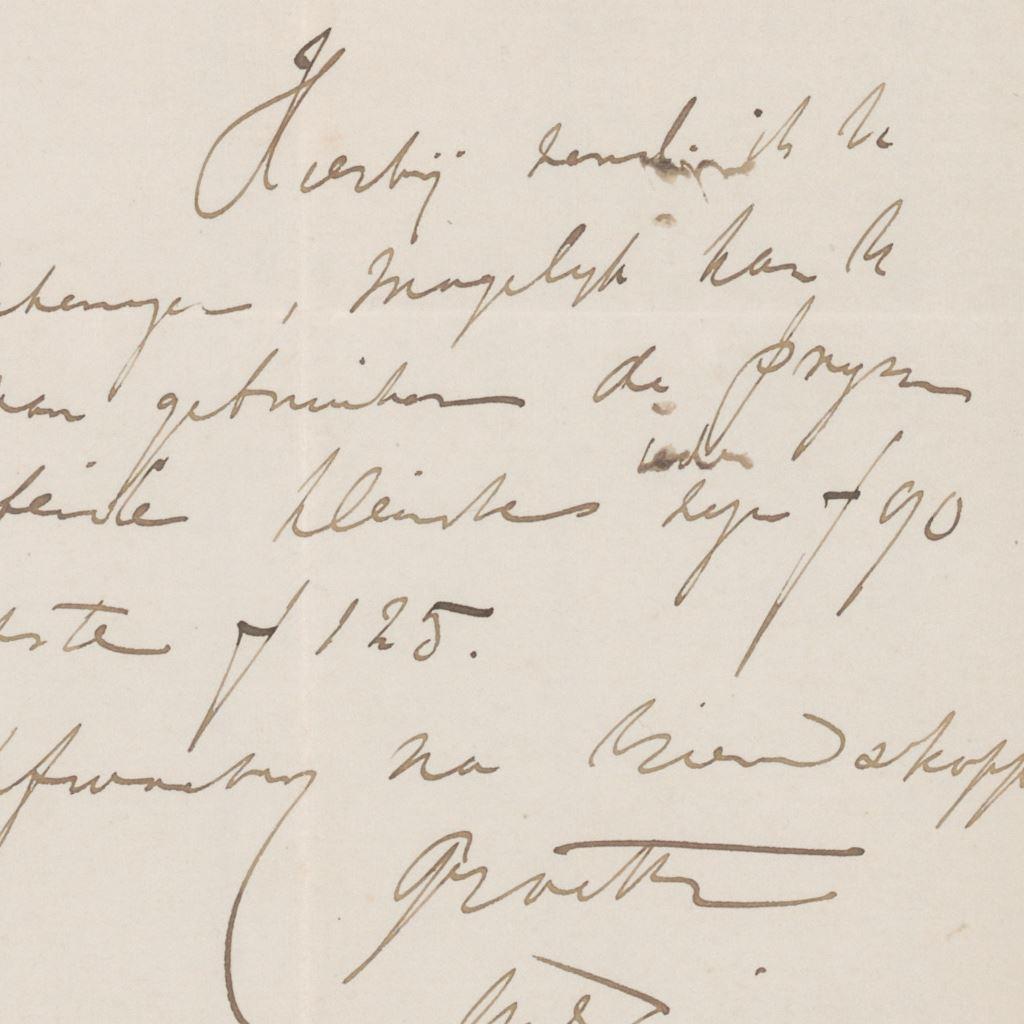 Hierbij zend ik U
keningen, mogelijk kan U
van gebruiken de prijzen
beide kleinste ieder zijn f 90
ste f 125.
Afwachting na vriendskapp
Groette